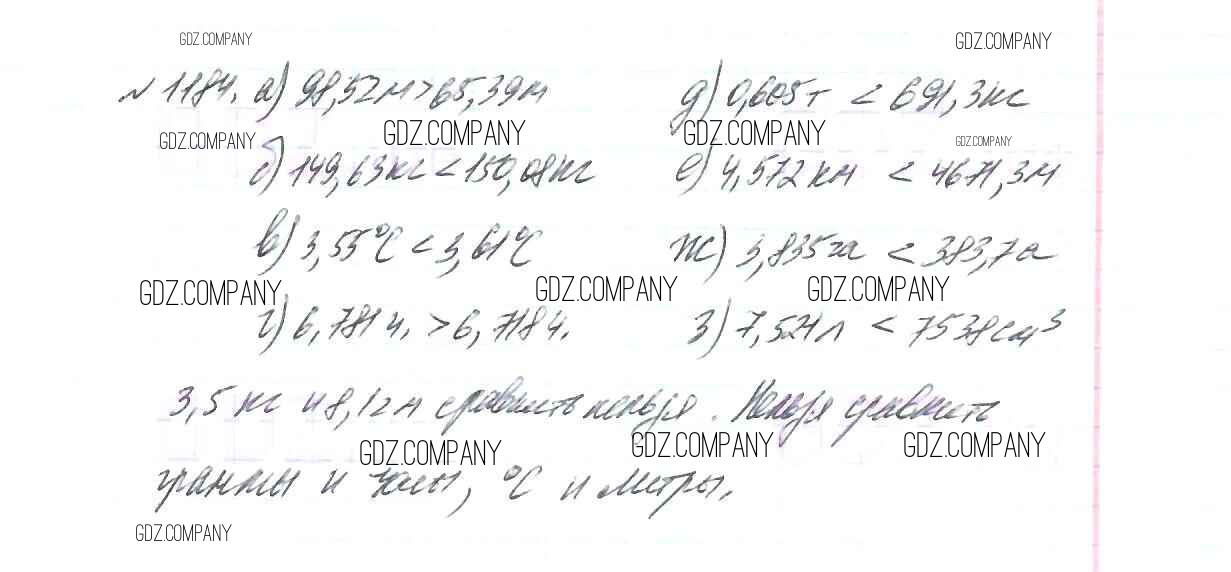 GDZ.COMPANY GDZ.COMPANY
№ 1184. а) 98,52м > 65,39м д) 0,605т < 691,3кг
GDZ.COMPANY GDZ.COMPANY GDZ.COMPANY GDZ.COMPANY
б) 149,63кг < 150,08кг е) 4,572км < 4671,3м
в) 3,55°C < 3,61°C ж) 3,835га < 383,7а
GDZ.COMPANY GDZ.COMPANY GDZ.COMPANY
г) 6,781ч. > 6,718ч. з) 7,521л < 7538см³
3,5 кг и 8,12м сравнить нельзя. Нельзя сравнить
GDZ.COMPANY GDZ.COMPANY GDZ.COMPANY
граммы и часы, °C и метры.
GDZ.COMPANY